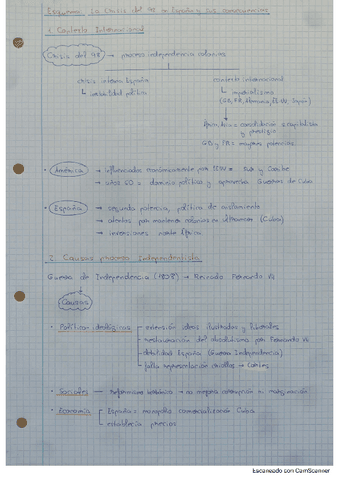 Esquema: La Crisis del 98 en España y sus consecuencias
1. Contexto Internacional
Crisis del 98 → proceso independencia colonias
crisis interna España
contexto internacional
↳ inestabilidad política
↳ imperialismo
(GB, FR, Alemania, EE.UU, Japón)
consolidación capitalista
y prestigio
GB y FR = mayores potencias
• América → influenciados económicamente por EEUU Sur y Caribe
→ años 60 = dominio político y aprovecha Guerras de Cuba
• España → segunda potencia, política de aislamiento
→ atentos por mantener colonias en ultramar (Cuba)
→ inversiones norte África
2. Causas proceso Independentista
Guerra de Independencia (1808) → Reinado Fernando VII
Causas
• Políticas ideológicas extensión ideas ilustradas y liberales
restauración del absolutismo por Fernando VII
debilidad España (Guerra Independencia)
falta representación criollos → Cortes
• Sociales → Reformismo borbónico → no mejora corrupción ni marginación
• Economía España = monopolio comercializando Cuba
establecía precios
Escaneado con CamScanner